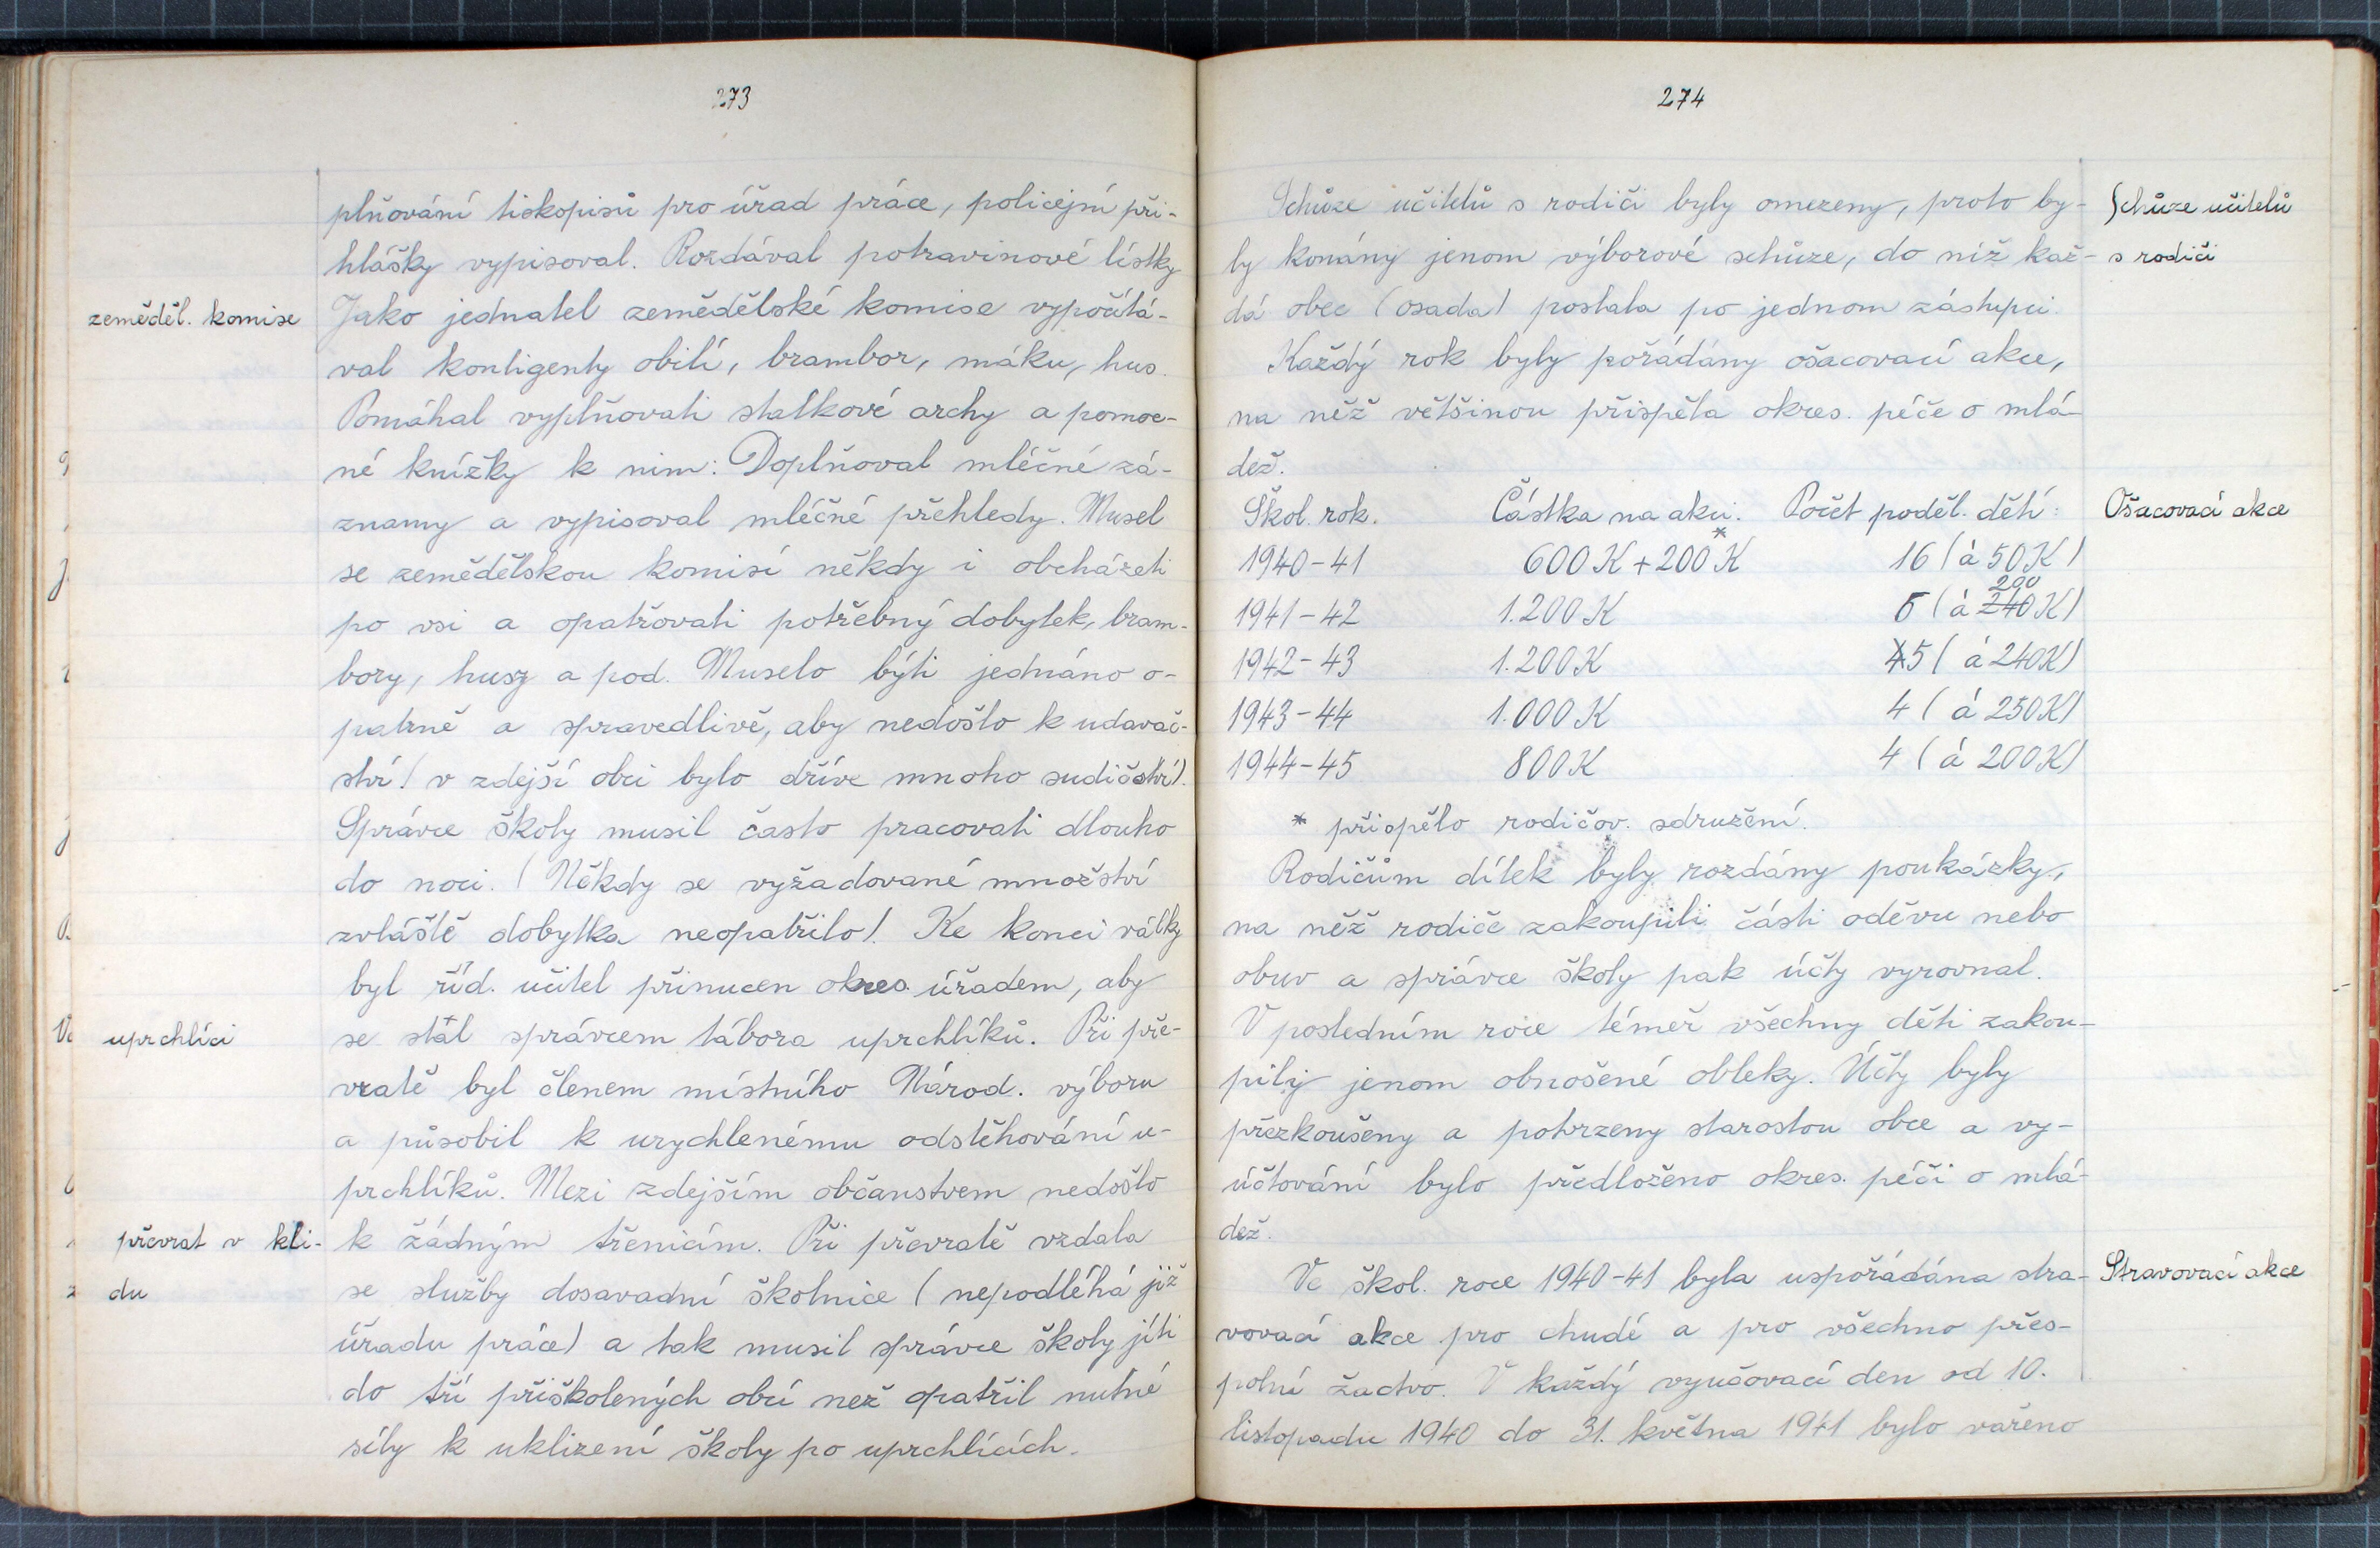 273
plňování tiskopisů pro úřad práce, policejní při-
hlášky vypisoval. Rozdával potravinové lístky
zeměděl. komise
Jako jednatel zemědělské komise vypočítá-
val kontigenty obilí, brambor, máku, hus.
Pomáhal vyplňovati statkové archy a pomoc-
né knížky k nim. Doplňoval mléčné zá-
znamy a vypisoval mléčné přehledy. Musel
se zemědělskou komisí někdy i obcházeti
po vsi a opatřovati potřebný dobytek, bram-
bory, husy a pod. Muselo býti jednáno o-
patrně a spravedlivě, aby nedošlo k udavač-
ství (v zdejší obci bylo dříve mnoho sudičství).
Správce školy musil často pracovati dlouho
do noci. (Někdy se vyžadované množství
zvláště dobytka neopatřilo). Ke konci války
byl říd. učitel přinucen okres. úřadem, aby
uprchlíci
se stal správcem tábora uprchlíků. Při pře-
vratě byl členem místního Národ. výboru
a působil k urychlenému odstěhování u-
prchlíků. Mezi zdejším občanstvem nedošlo
převrat v kli-
k žádným třenicím. Při převratě vzdala
du
se služby dosavadní školnice (nepodléhá již
úřadu práce) a tak musil správce školy jíti
do tří přiškolených obcí než opatřil nutné
síly k uklizení školy po uprchlících.
274
Schůze učitelů s rodiči byly omezeny, proto by-
Schůze učitelů
ly konány jenom výborové schůze, do níž kaž-
s rodiči
dá obec (osada) poslala po jednom zástupci.
Každý rok byly pořádány ošacovací akce,
na něž většinou přispěla okres. péče o mlá-
dež.
Škol. rok. Částka na akci. Počet poděl. dětí:
Ošacovací akce
1940-41 600 K + 200 K* 16 (á 50 K)
200
1941-42 1.200 K 6 (á 240 K)
1942-43 1.200 K 5 (á 240 K)
1943-44 1.000 K 4 (á 250 K)
1944-45 800 K 4 (á 200 K)
* přispělo rodičov. sdružení.
Rodičům dítek byly rozdány poukázky,
na něž rodiče zakoupili části oděvu nebo
obuv a správce školy pak účty vyrovnal.
V posledním roce téměř všechny děti zakou-
pily jenom obnošené obleky. Účty byly
přezkoušeny a potvrzeny starostou obce a vy-
účtování bylo předloženo okres. péči o mlá-
dež.
Ve škol. roce 1940-41 byla uspořádána stra-
Stravovací akce
vovací akce pro chudé a pro všechno přes-
polní žactvo. V každý vyučovací den od 10.
listopadu 1940 do 31. května 1941 bylo vařeno